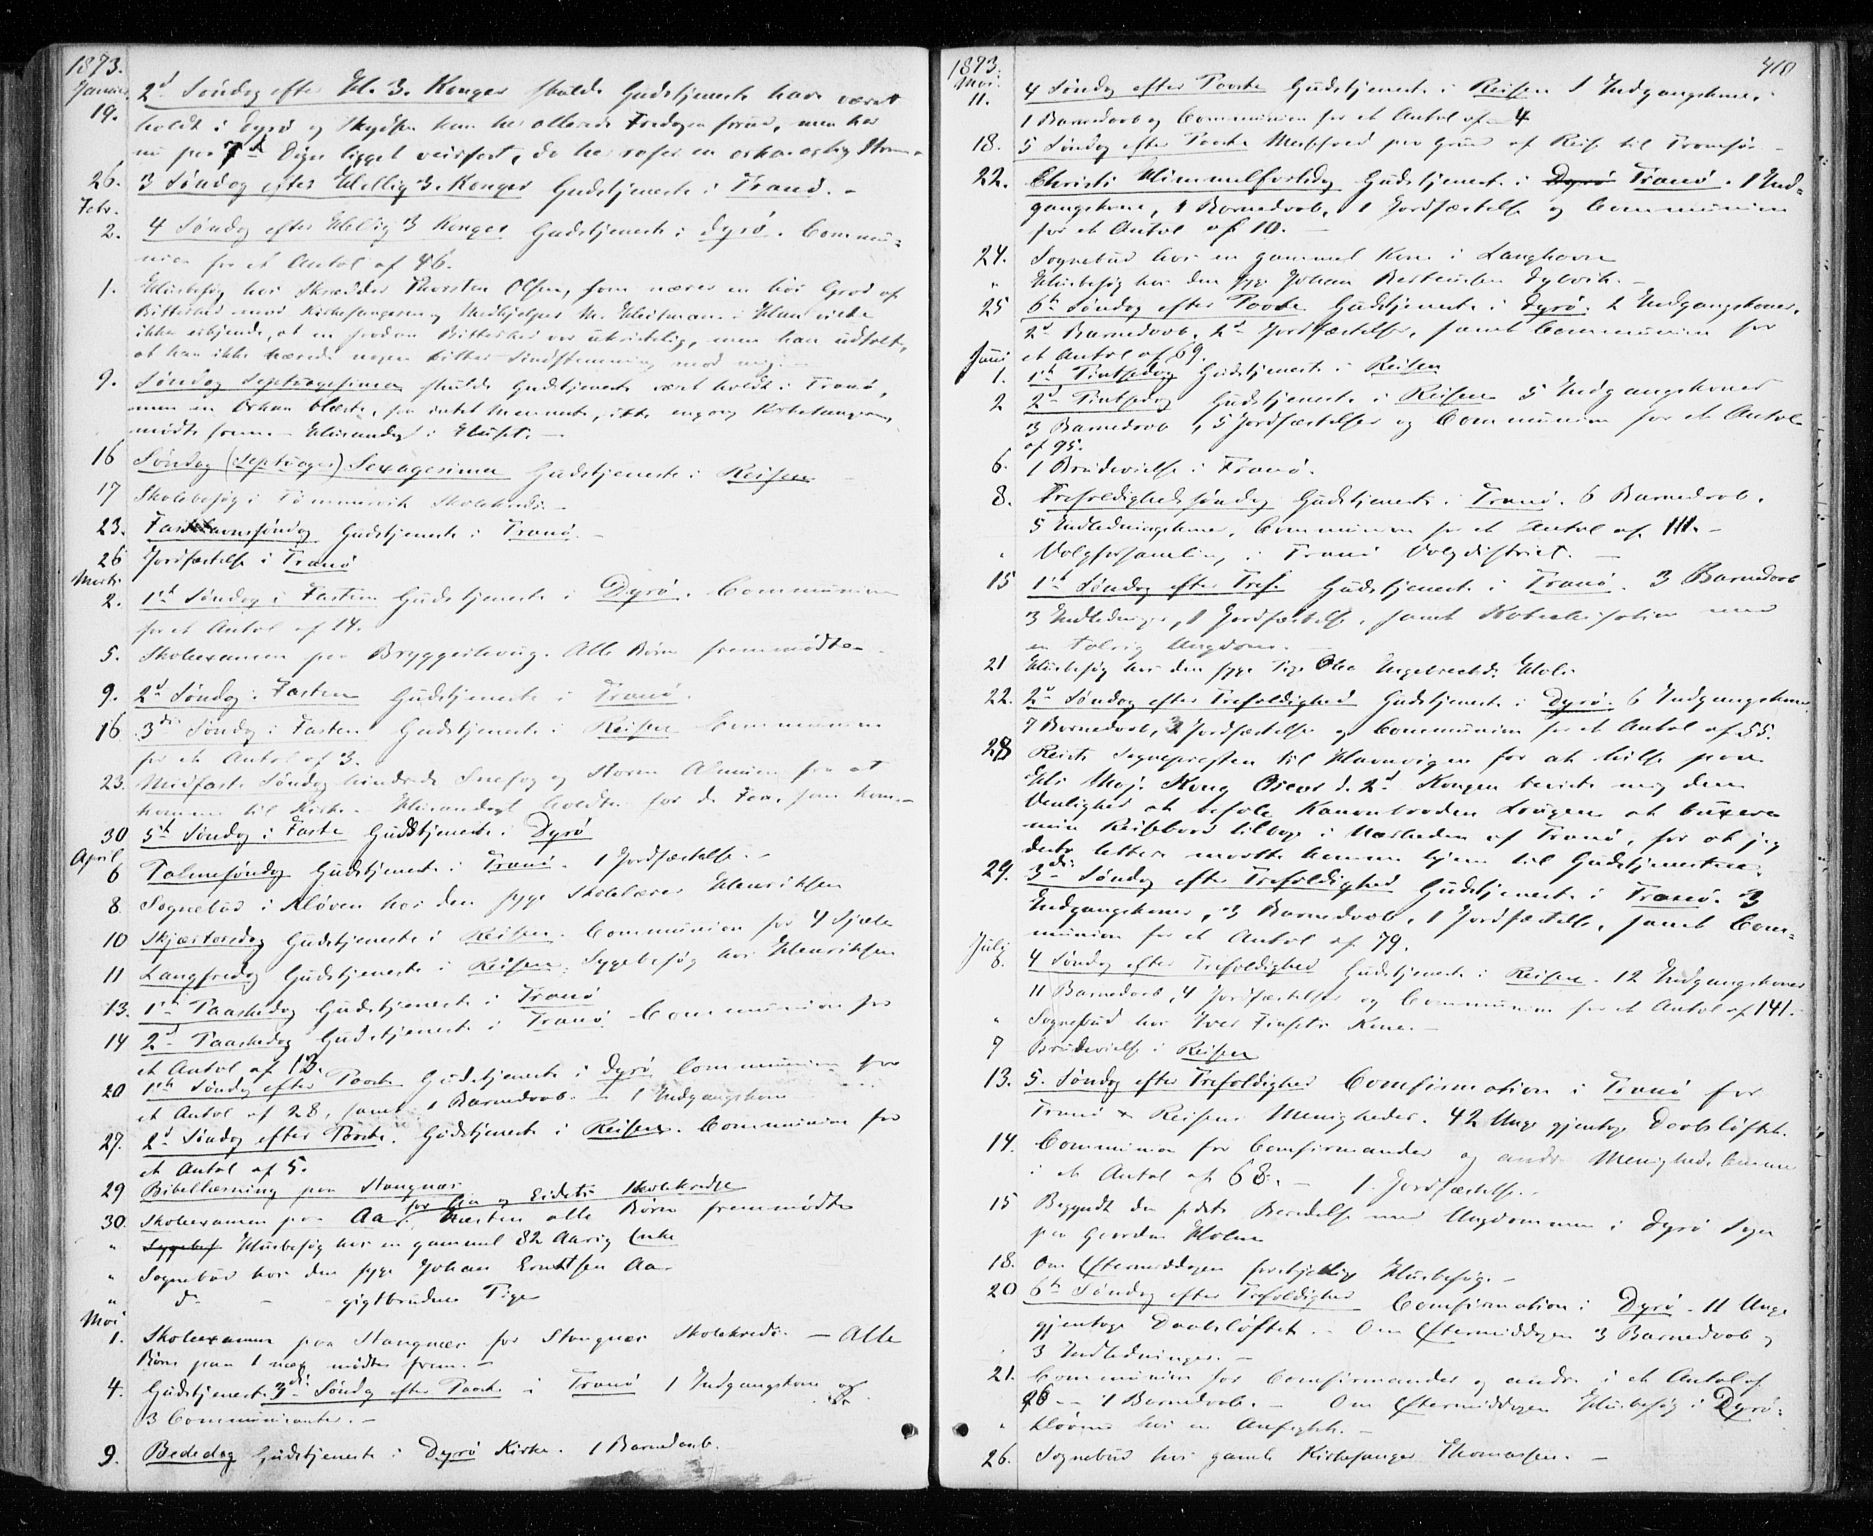 1873.
Januar
19. 2d Søndag efter Hl. 3. Konger skulde Gudstjeneste have været
holdt i Dyrø og Skydsen kom her allerede Fredagen forud, men har
nu paa 7d Dagen ligget veirfast, da her raser en orkanartig Storm
26. 3 Søndag efter Hellig 3. Konger Gudstjeneste i Tranø. -
Febr.
2. 4 Søndag efter Hellig 3 Konger Gudstjeneste i Dyrø. Commu-
nion for et Antal af 46.
1. Husbesøg hos Skrædder Thorsten Olsen, som nærer en høi Grad af
Bitterhed mod Kirkesangeren og Medhjelper M. Heitmann. Han vilde
ikke erkjende, at en saadan Bitterhed var ukristelig, men han udtalte,
at han ikke nærede nogen bitter Sindsstemning mod mig. -
9. Søndag Septuagesima skulde Gudstjeneste vært holdt i Tranø,
men en Orkan blæste, saa intet Menneske, ikke engang Kirkesangeren,
mødte frem. - Husandagt i Huset. -
16 Søndag (Septuages) Sexagesima Gudstjeneste i Reisen
17 Skolebesøg i Tømmervik Skolekreds. -
23. Fastelavnssøndag Gudstjeneste i Tranø. -
26 Jordfæstelse i Tranø
Marts
2. 1st Søndag i Fasten Gudstjeneste i Dyrø. Communion
for et Antal af 14.
5. Skoleexamen paa Bryggerhaug. Alle Børn fremmødte. -
9. 2d Søndag i Fasten Gudstjeneste i Tranø.
16 3die Søndag i Fasten Gudstjeneste i Reisen Communion
for et Antal af 3.
23. Midfaste Søndag hindrede Snefog og Storm Almuen fra at
komme til Kirke. - Husandagt holdtes for de Faa, som kom. -
30 5te Søndag i Faste Gudstjeneste i Dyrø
April
6 Palmesøndag Gudstjeneste i Tranø. 1 Jordfæstelse. -
8. Sognebud i Kløven hos den syge Skolelærer Henriksen
10 Skjærtorsdag Gudstjeneste i Reisen. Communion for 4 Sjæle
11 Langfredag Gudstjeneste i Reisen. Sygebesøg hos Henriksen
13. 1ste Paaskedag Gudstjeneste i Tranø
14 2d Paaskedag Gudstjeneste i Tranø. Communion for
et Antal af 13.
20 1ste Søndag efter Paaske Gudstjeneste i Dyrø Communion for
et Antal af 28, samt 1 Barnedaab. - 1 Indgangskone
27. 2d Søndag efter Paaske. Gudstjeneste i Reisen. Communion for
et Antal af 5.
29 Bibellæsning paa Stangnæs
for Aa og Eidets Skolekredse
30. Skoleexamen paa Aa, Næsten alle Børn fremmødte
" Sygebes Husbesøg hos en gammel 82 Aarig Enke
" Sognebud hos den syge Johan Erntsen Aa.
" do - gigtbrudne Pige
Mai
1. Skoleexamen paa Stangnæs for Stangnæs Skolekreds. - Alle
Børn paa 1 nær mødte frem. -
4. Gudstjeneste 3die Søndag efter Paaske i Tranø 1 Indgangskone og
3 Communicanter. -
9. Bededag Gudstjeneste i Dyrø Kirke. 1 Barnedaab.
1873. 410
Mai.
11. 4 Søndag efter Paaske Gudstjeneste i Reisen 1 Indgangskone,
1 Barnedaab og Communion for et Antal af 4
18. 5 Søndag efter Paaske Messefald paa Grund af Reise til Tromsø. -
22. Christi Himmelfartsdag Gudstjeneste i Dyrø Tranø. 1 Ind-
gangskone, 1 Barnedaab, 1 Jordfæstelse og Communion
for et Antal af 10. -
24. Sognebud hos en gammel Kone i Langhavn
" Husbesøg hos den syge Johan Bertheusen Dylvik. -
25 6te Søndag efter Paaske Gudstjeneste i Dyrø. 2 Indgangskoner,
2d Barnedaab, 2d Jordfæstelser, samt Communion for
et Antal af 69.
Juni
1. 1ste Pintsedag Gudstjeneste i Reisen
2 2d Pintsedag Gudstjeneste i Reisen 5 Indgangskoner
3 Barnedaab, 5 Jordfæstelser og Communion for et Antal
af 95.
6. 1 Brudevielse i Tranø.
8. Trefoldighedssøndag Gudstjeneste i Tranø. 6 Barnedaab.
5 Indledningskoner, Communion for et Antal af 111. -
" Valgforsamling i Tranø Valgdistrict. -
15 1ste Søndag efter Tref. Gudstjeneste i Tranø. 3 Barnedaab
3 Indledninger, 1 Jordfæstelse, samt Katechisation med
en talrig Ungdom. -
21 Husbesøg hos den syge Pige Oba Ingebrechts. Hol.
22. 2d Søndag efter Trefoldighed Gudstjeneste i Dyrø. 6 Indgangskoner
7 Barnedaab, 3 Jordfæstelser og Communion for et Antal af 55.
28 Reiste Sognepræsten til Havnvigen for at hilse paa
Hs. Maj. Kong Oscar d. 2d. Kongen beviste mig den
Venlighed at befale Kanonbaaden Lougen at buxere
min Reisebaad tilbage i Nærheden af Tranø, for at jeg
desto lettere maatte komme hjem til Gudstjenesten.
29. 3die Søndag efter Trefoldighed Gudstjeneste i Tranø. 3
Indgangskoner, 3 Barnedaab, 1 Jordfæstelse, samt Com-
munion for et Antal af 79.
July
6. 4 Søndag efter Trefoldighed Gudstjeneste i Reisen. 12 Indgangskoner
11 Barnedaab, 4 Jordfæstelser og Communion for et Antal af 141. -
" Sognebud hos Iver Finsæts Kone. -
7 Brudevielse i Reisen
13. 5. Søndag efter Trefoldighed Comfirmation i Tranø for
Tranø & Reisens Menigheder. 42 Unge gjentoge Daabsløftet.
14. Communion for Comfirmander og andre Menighedslemmer
i et Antal af 68. - 1 Jordfæstelse.
15 Begyndt den sidste Beredelse med Ungdommen i Dyrø Sogn
paa Gaarden Holm
18. Om Eftermiddagen forskjellige Husbesøg. -
20 6te Søndag efter Trefoldighed Comfirmation i Dyrø. 11 Unge
gjentoge Daabsløftet. - Om Eftermiddagen 3 Barnedaab og
3 Indledninger. -
21. Communion for Comfirmander og andre i et Antal af
26 -- 1 Barnedaab. - Om Eftermiddagen Husbesøg i Dyrø-
" kløven hos en Anfægtet. -
26. Sognebud hos gamle Kirkesanger Thomassen. -